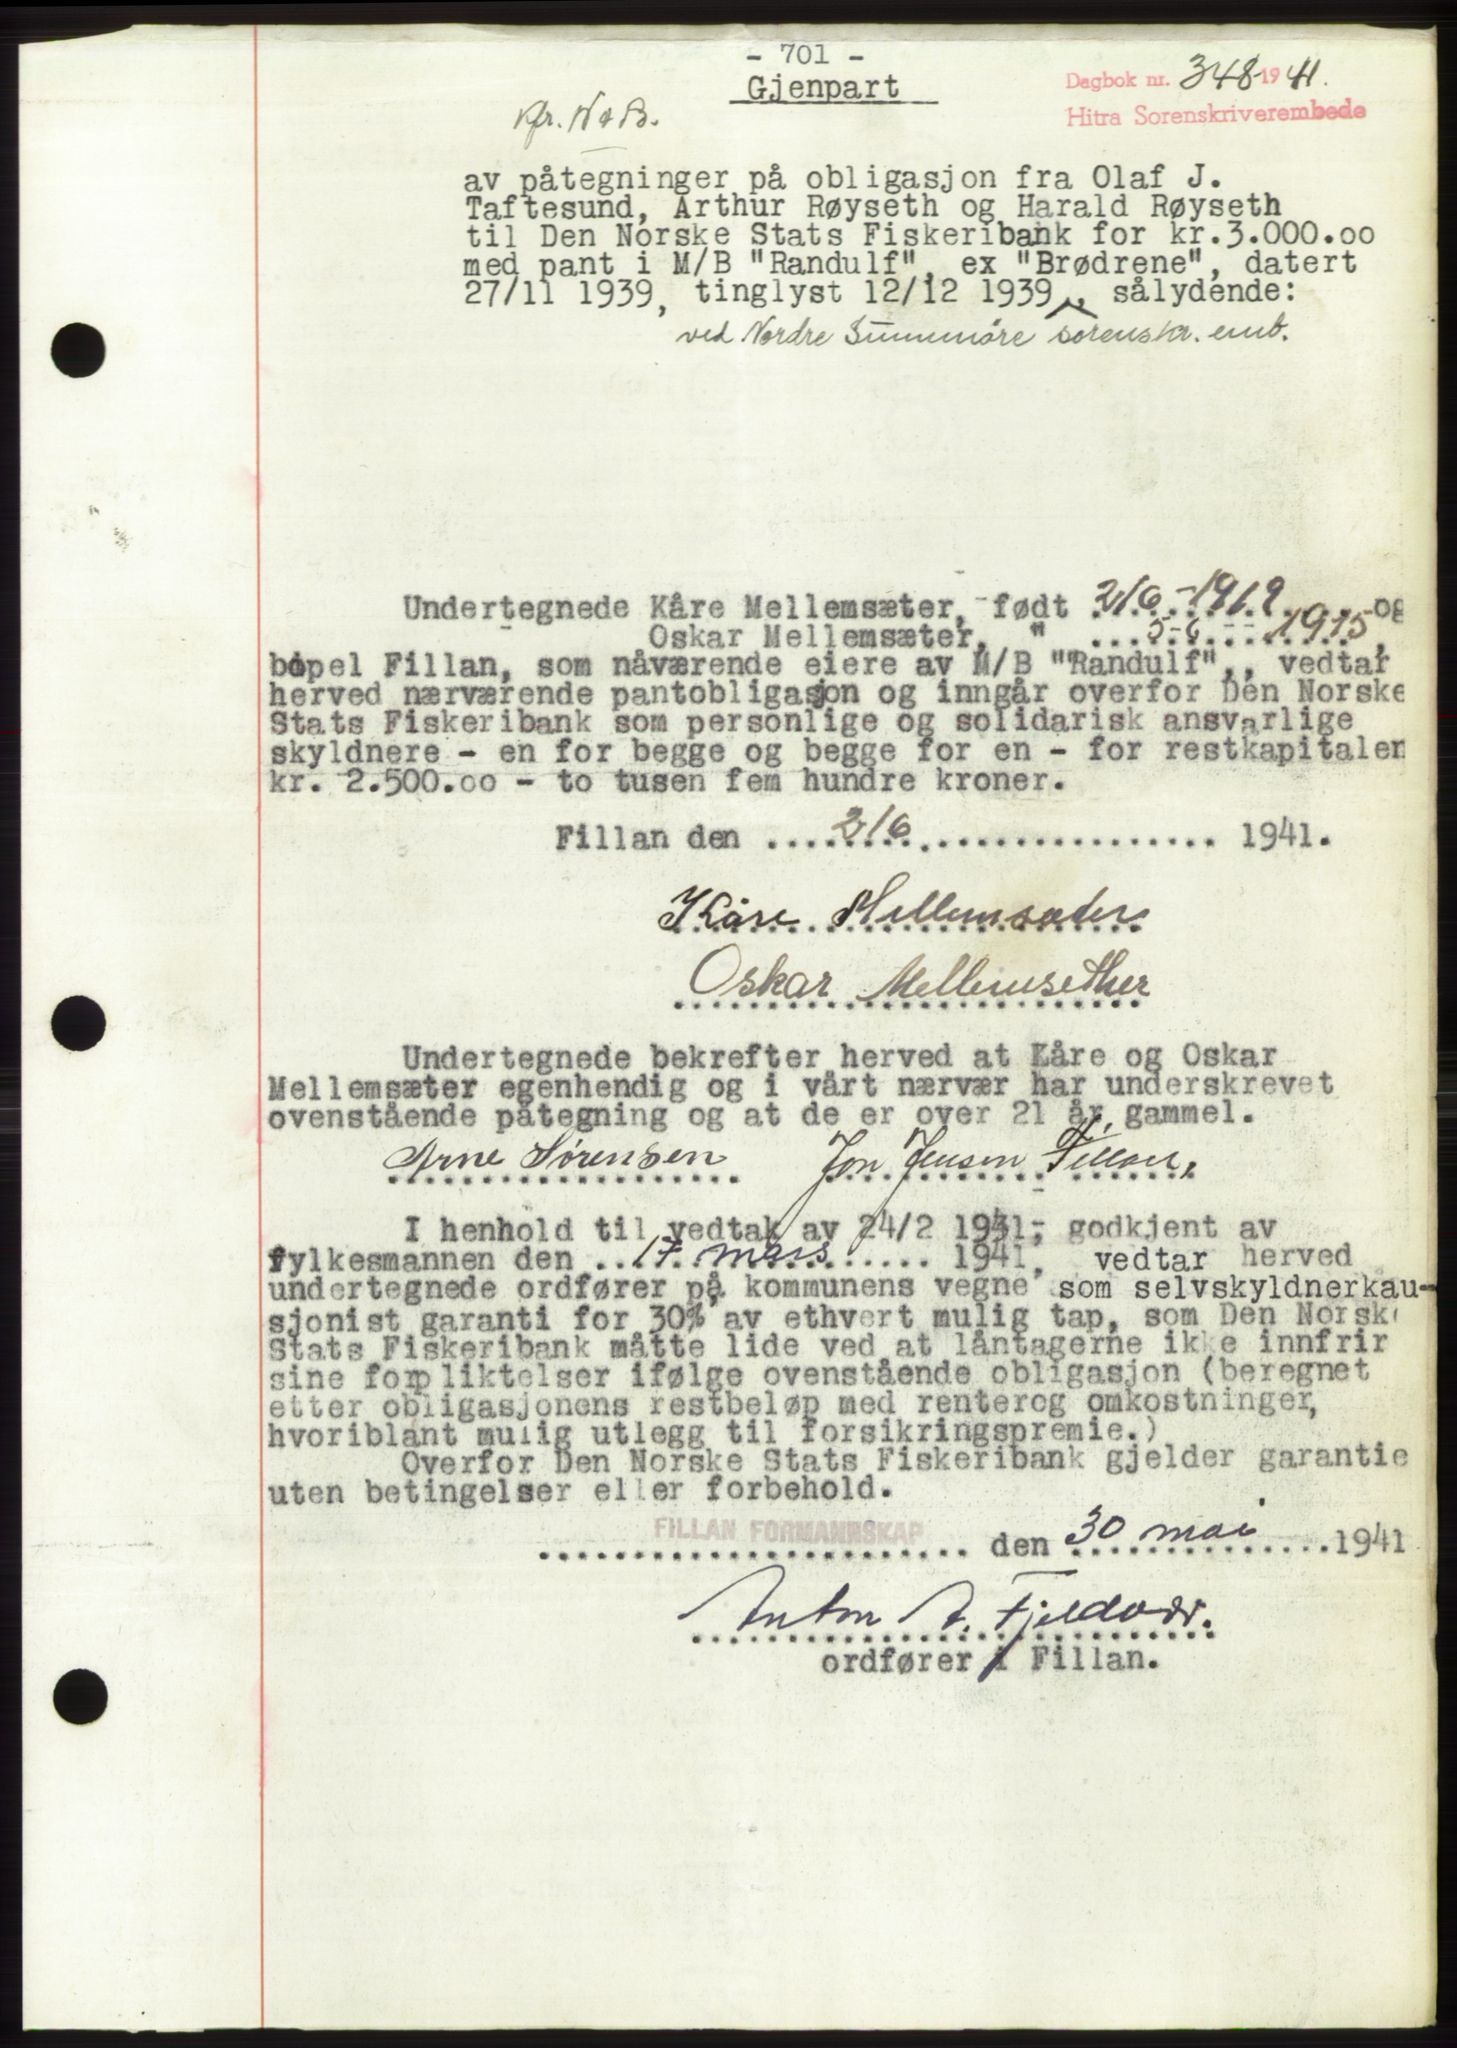 - 701 -
Gjenpart
Dagbok nr. 348-1941.
Hitra Sorenskriverembede
av påtegninger på obligasjon fra Olaf J.
Taftesund, Arthur Røyseth og Harald Røyseth
til Den Norske Stats Fiskeribank for kr.3.000.oo
med pant i M/B "Randulf", ex "Brødrene", datert
27/11 1939, tinglyst 12/12 1939 , sålydende:
ved Nordre Sunnmøre sorenskr. emb.
Undertegnede Kåre Mellemsæter, født 2/6-1912 og
Oskar Mellemsæter, " 5-6 1915,
bopel Fillan, som nåværende eiere av M/B "Randulf", vedtar
herved nærværende pantobligasjon og inngår overfor Den Norske
Stats Fiskeribank som personlige og solidarisk ansvarlige
skyldnere - en for begge og begge for en - for restkapitalen
kr. 2.500.oo - to tusen fem hundre kroner.
Fillan den ....2/6................ 1941.
Kåre Mellemsæter
Oskar Mellemsether
Undertegnede bekrefter herved at Kåre og Oskar
Mellemsæter egenhendig og i vårt nærvær har underskrevet
ovenstående påtegning og at de er over 21 år gammel.
Arne Sørensen Jon Jensen Fillan,
I henhold til vedtak av 24/2 1941, godkjent av
fylkesmannen den ..17. mars...... 1941, vedtar herved
undertegnede ordfører på kommunens vegne som selvskyldnerkau-
sjonist garanti for 30% av ethvert mulig tap, som Den Norsk
Stats Fiskeribank måtte lide ved at låntagerne ikke innfrir
sine forpliktelser ifølge ovenstående obligasjon (beregnet
etter obligasjonens restbeløp med renterog omkostninger,
hvoriblant mulig utlegg til forsikringspremie.)
Overfor Den Norske Stats Fiskeribank gjelder garantie
uten betingelser eller forbehold.
FILLAN FORMANNSKAP den 30 mai 1941
Anton A. Fjeldvær.
ordfører i Fillan.